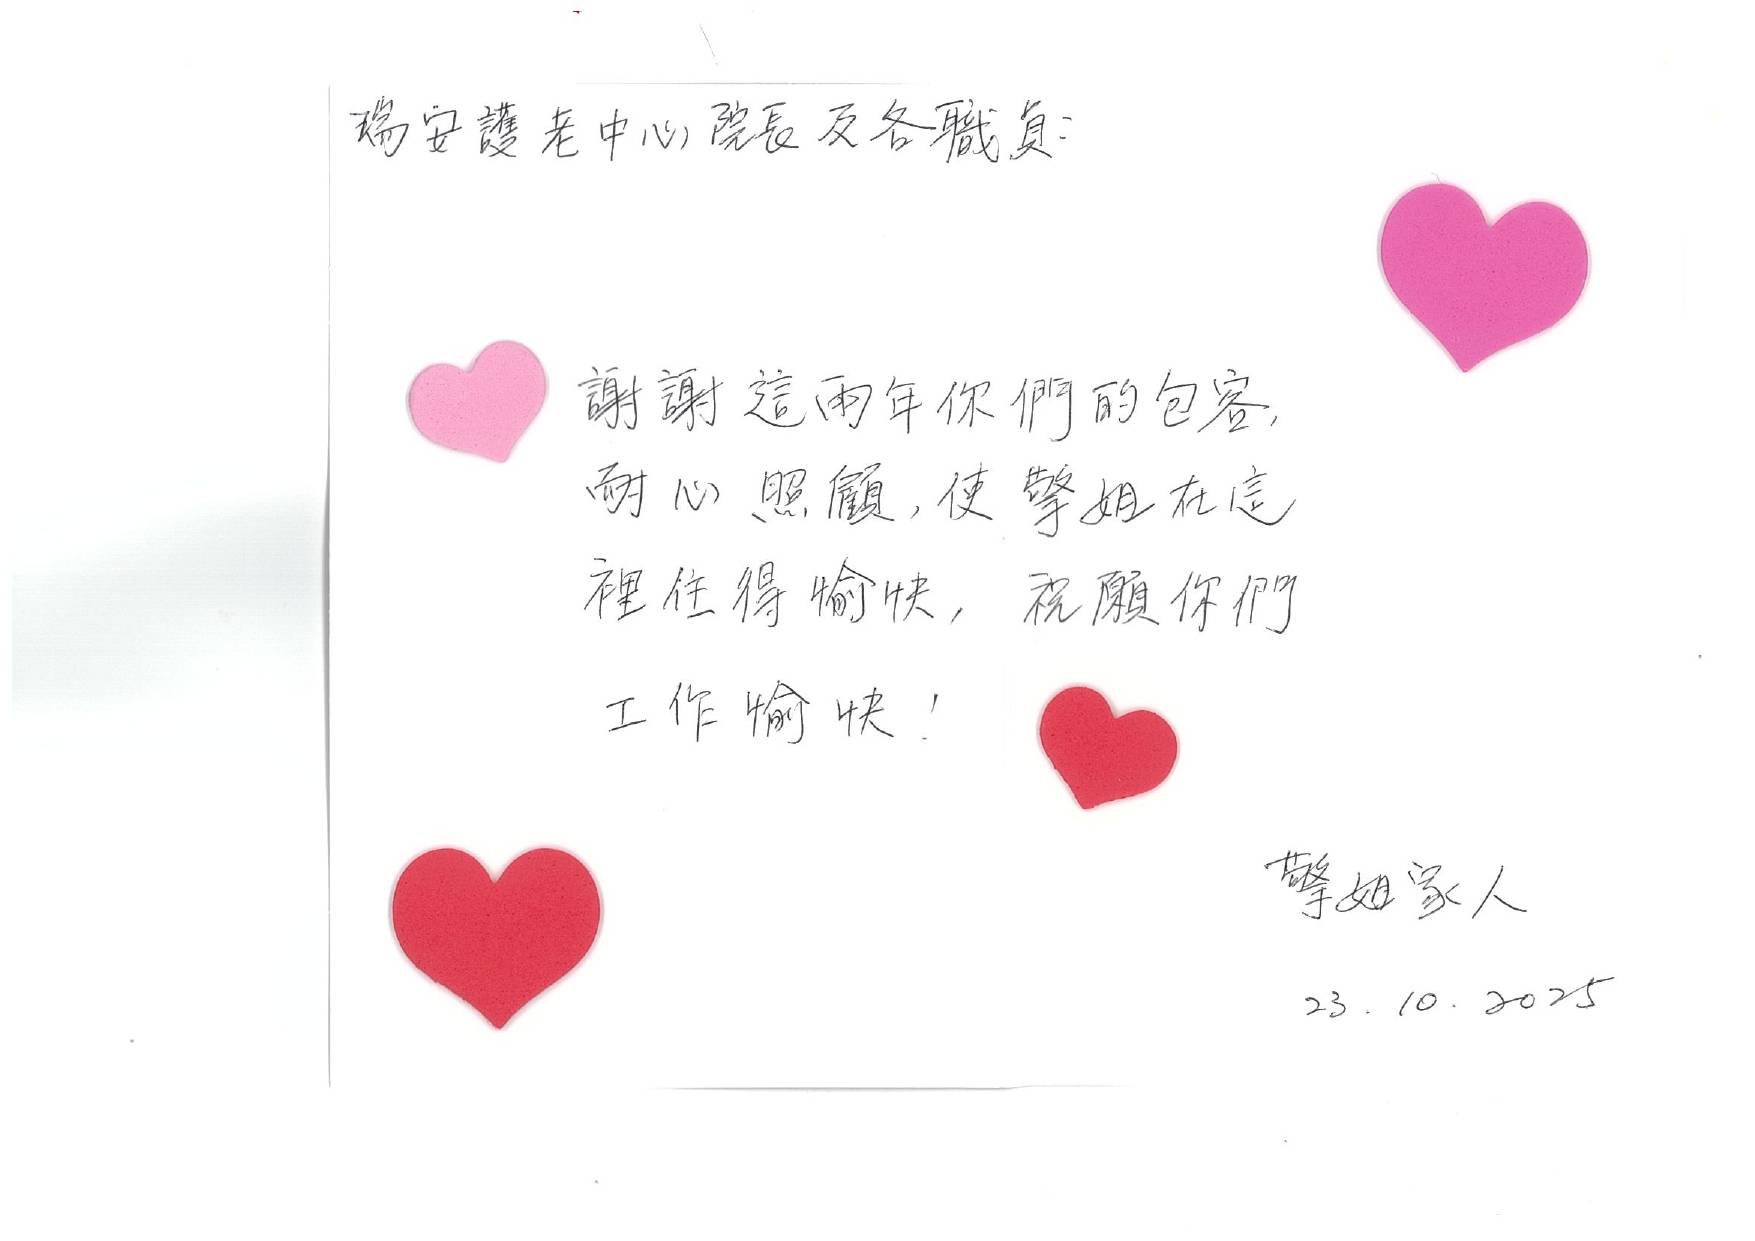 瑞安護老中心院長及各職員:
謝謝這兩年你們的包容,
耐心照顧,使擎姐在這
裡住得愉快,祝願你們
工作愉快!
擎姐家人
23.10.2025